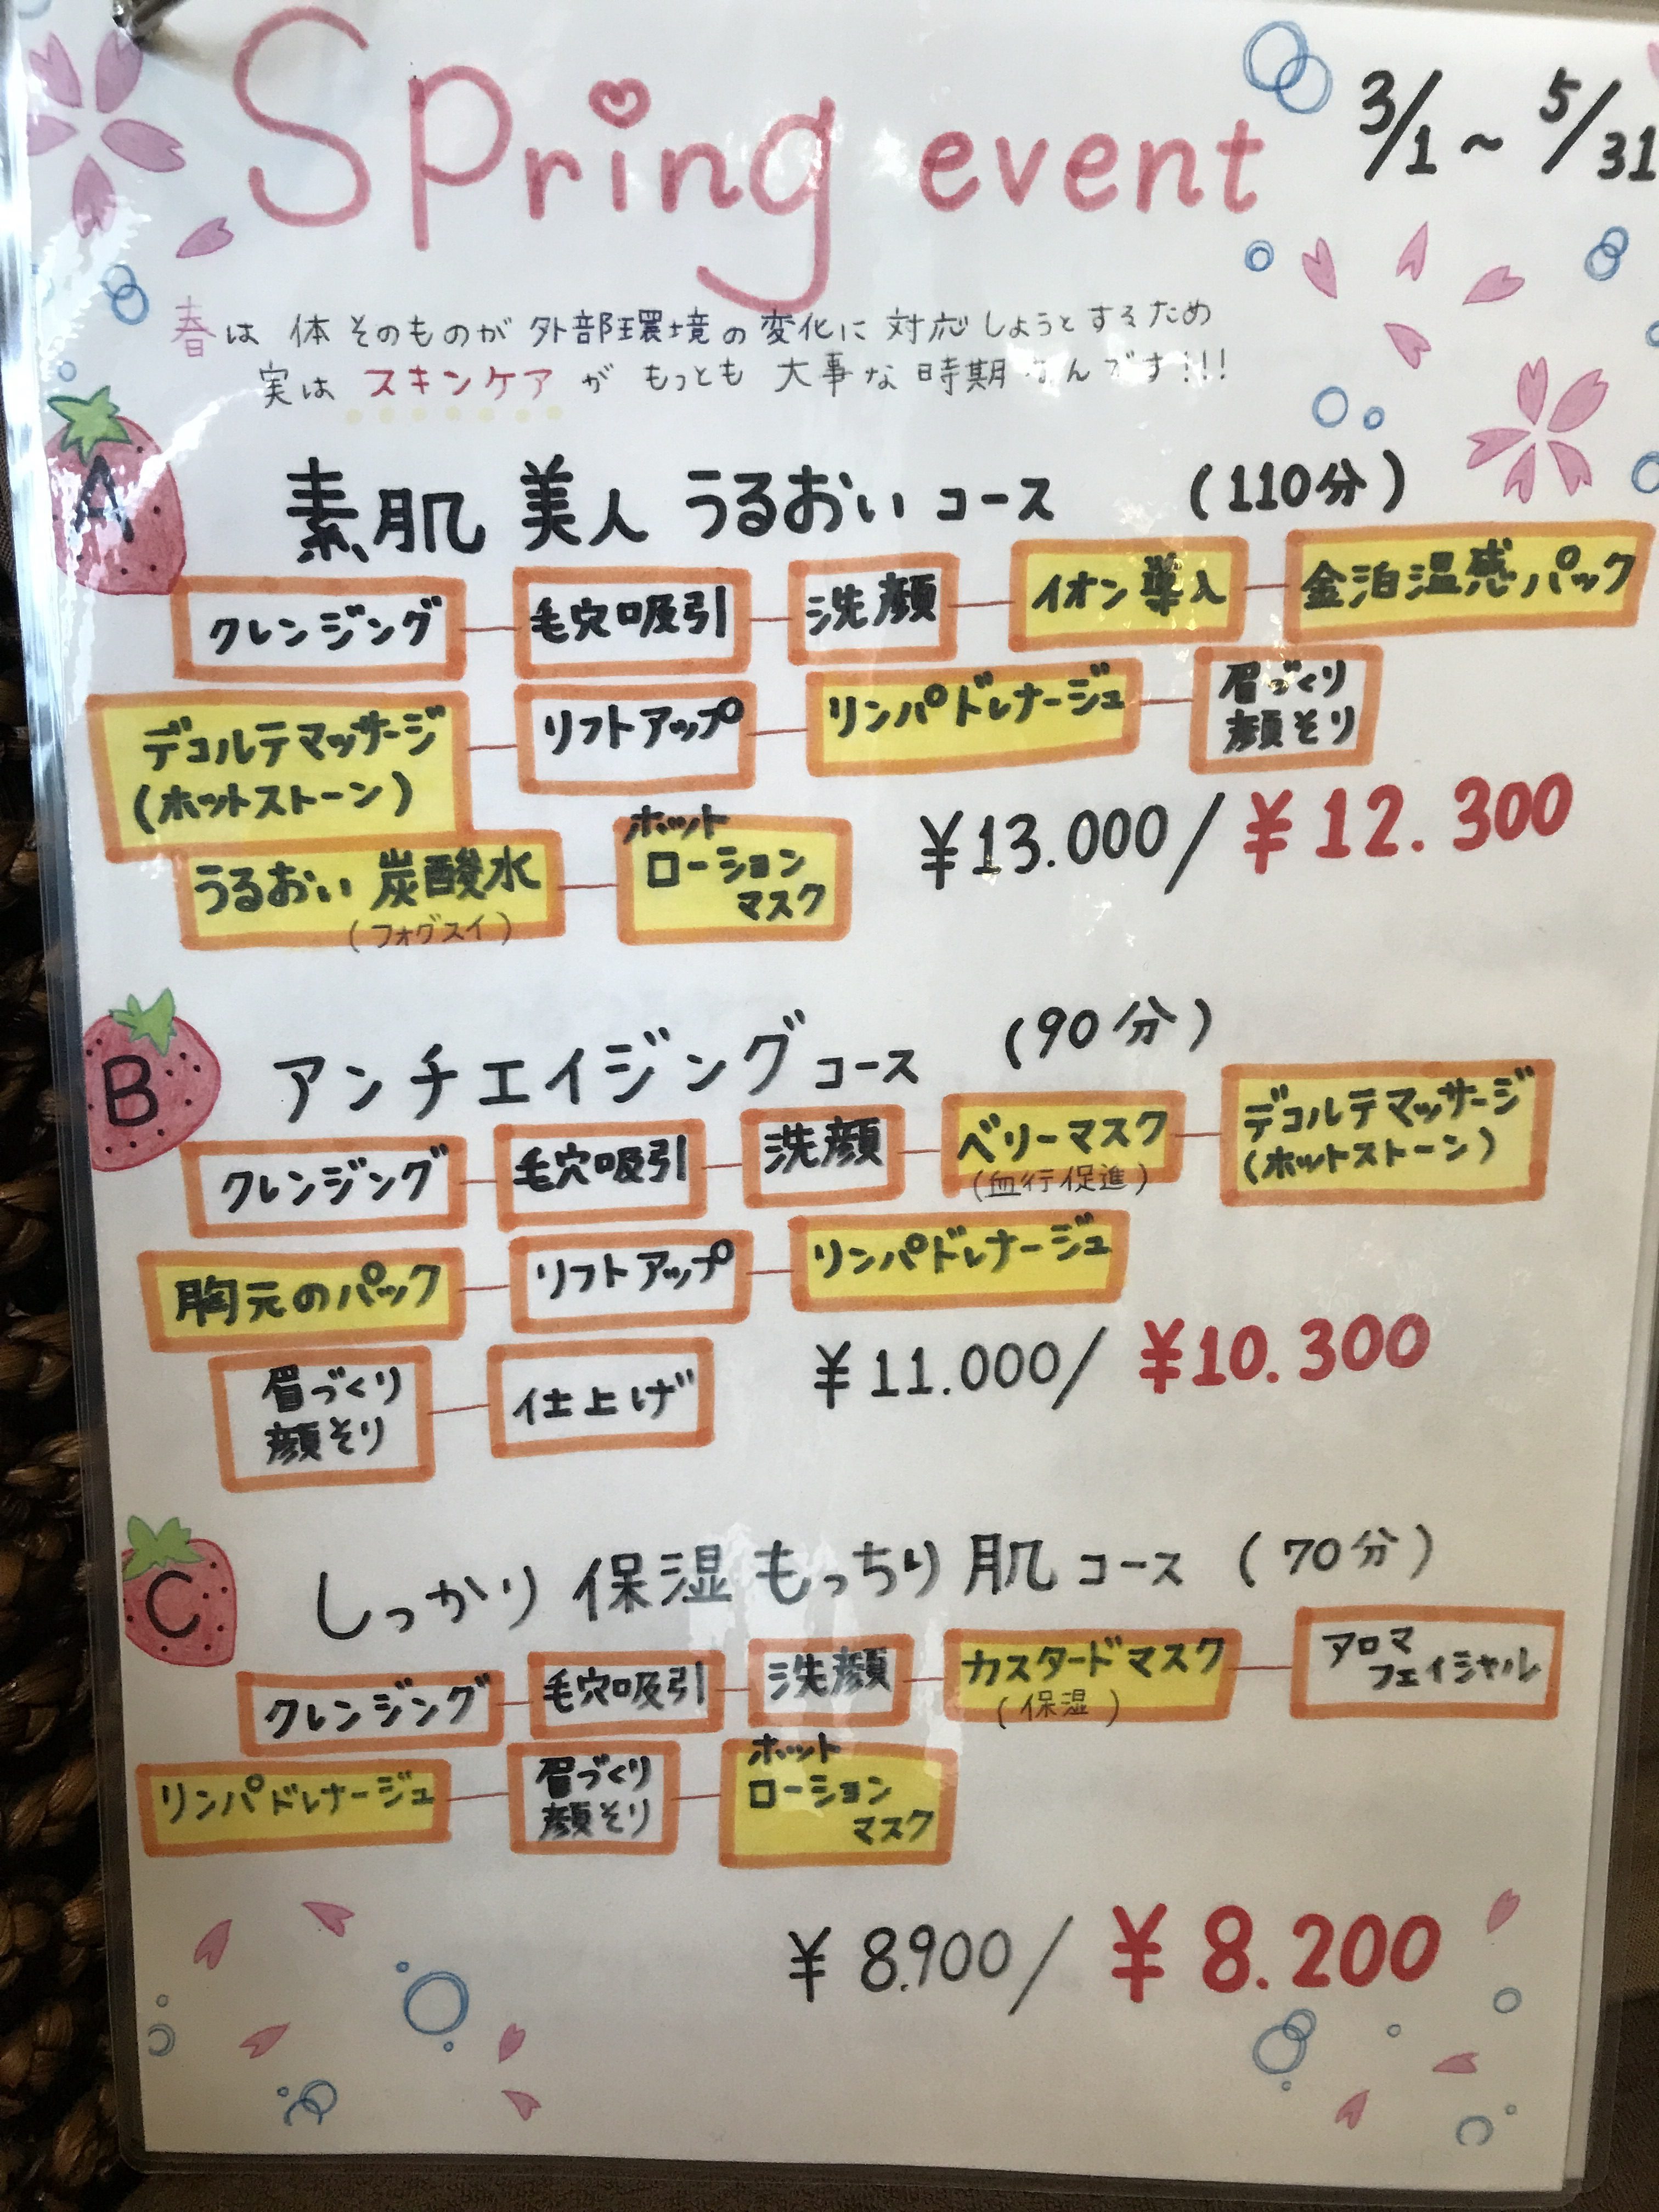 Spring event 3/1 ~ 5/31
春は 体 そのものが 外部環境の変化に 対応しようとするため
実は スキンケア が もっとも 大事な 時期なんです!!!
A 素肌 美人 うるおい コース (110分)
クレンジング 毛穴吸引 洗顔 イオン導入 金泊温感パック
デコルテマッサージ リフトアップ リンパドレナージュ 眉づくり
(ホットストーン) 顔そり
うるおい 炭酸水 ホット ¥13.000/¥12.300
(フォグスイ) ローション
マスク
B アンチエイジングコース (90分)
クレンジング 毛穴吸引 洗顔 ベリーマスク デコルテマッサージ
(血行促進) (ホットストーン)
胸元のパック リフトアップ リンパドレナージュ
眉づくり 仕上げ ¥11.000/ ¥10.300
顔そり
C しっかり 保湿 もっちり 肌 コース (70分)
クレンジング 毛穴吸引 洗顔 カスタードマスク アロマ
(保湿) フェイシャル
リンパドレナージュ 眉づくり ホット
顔そり ローション
マスク
¥8.900/ ¥8.200